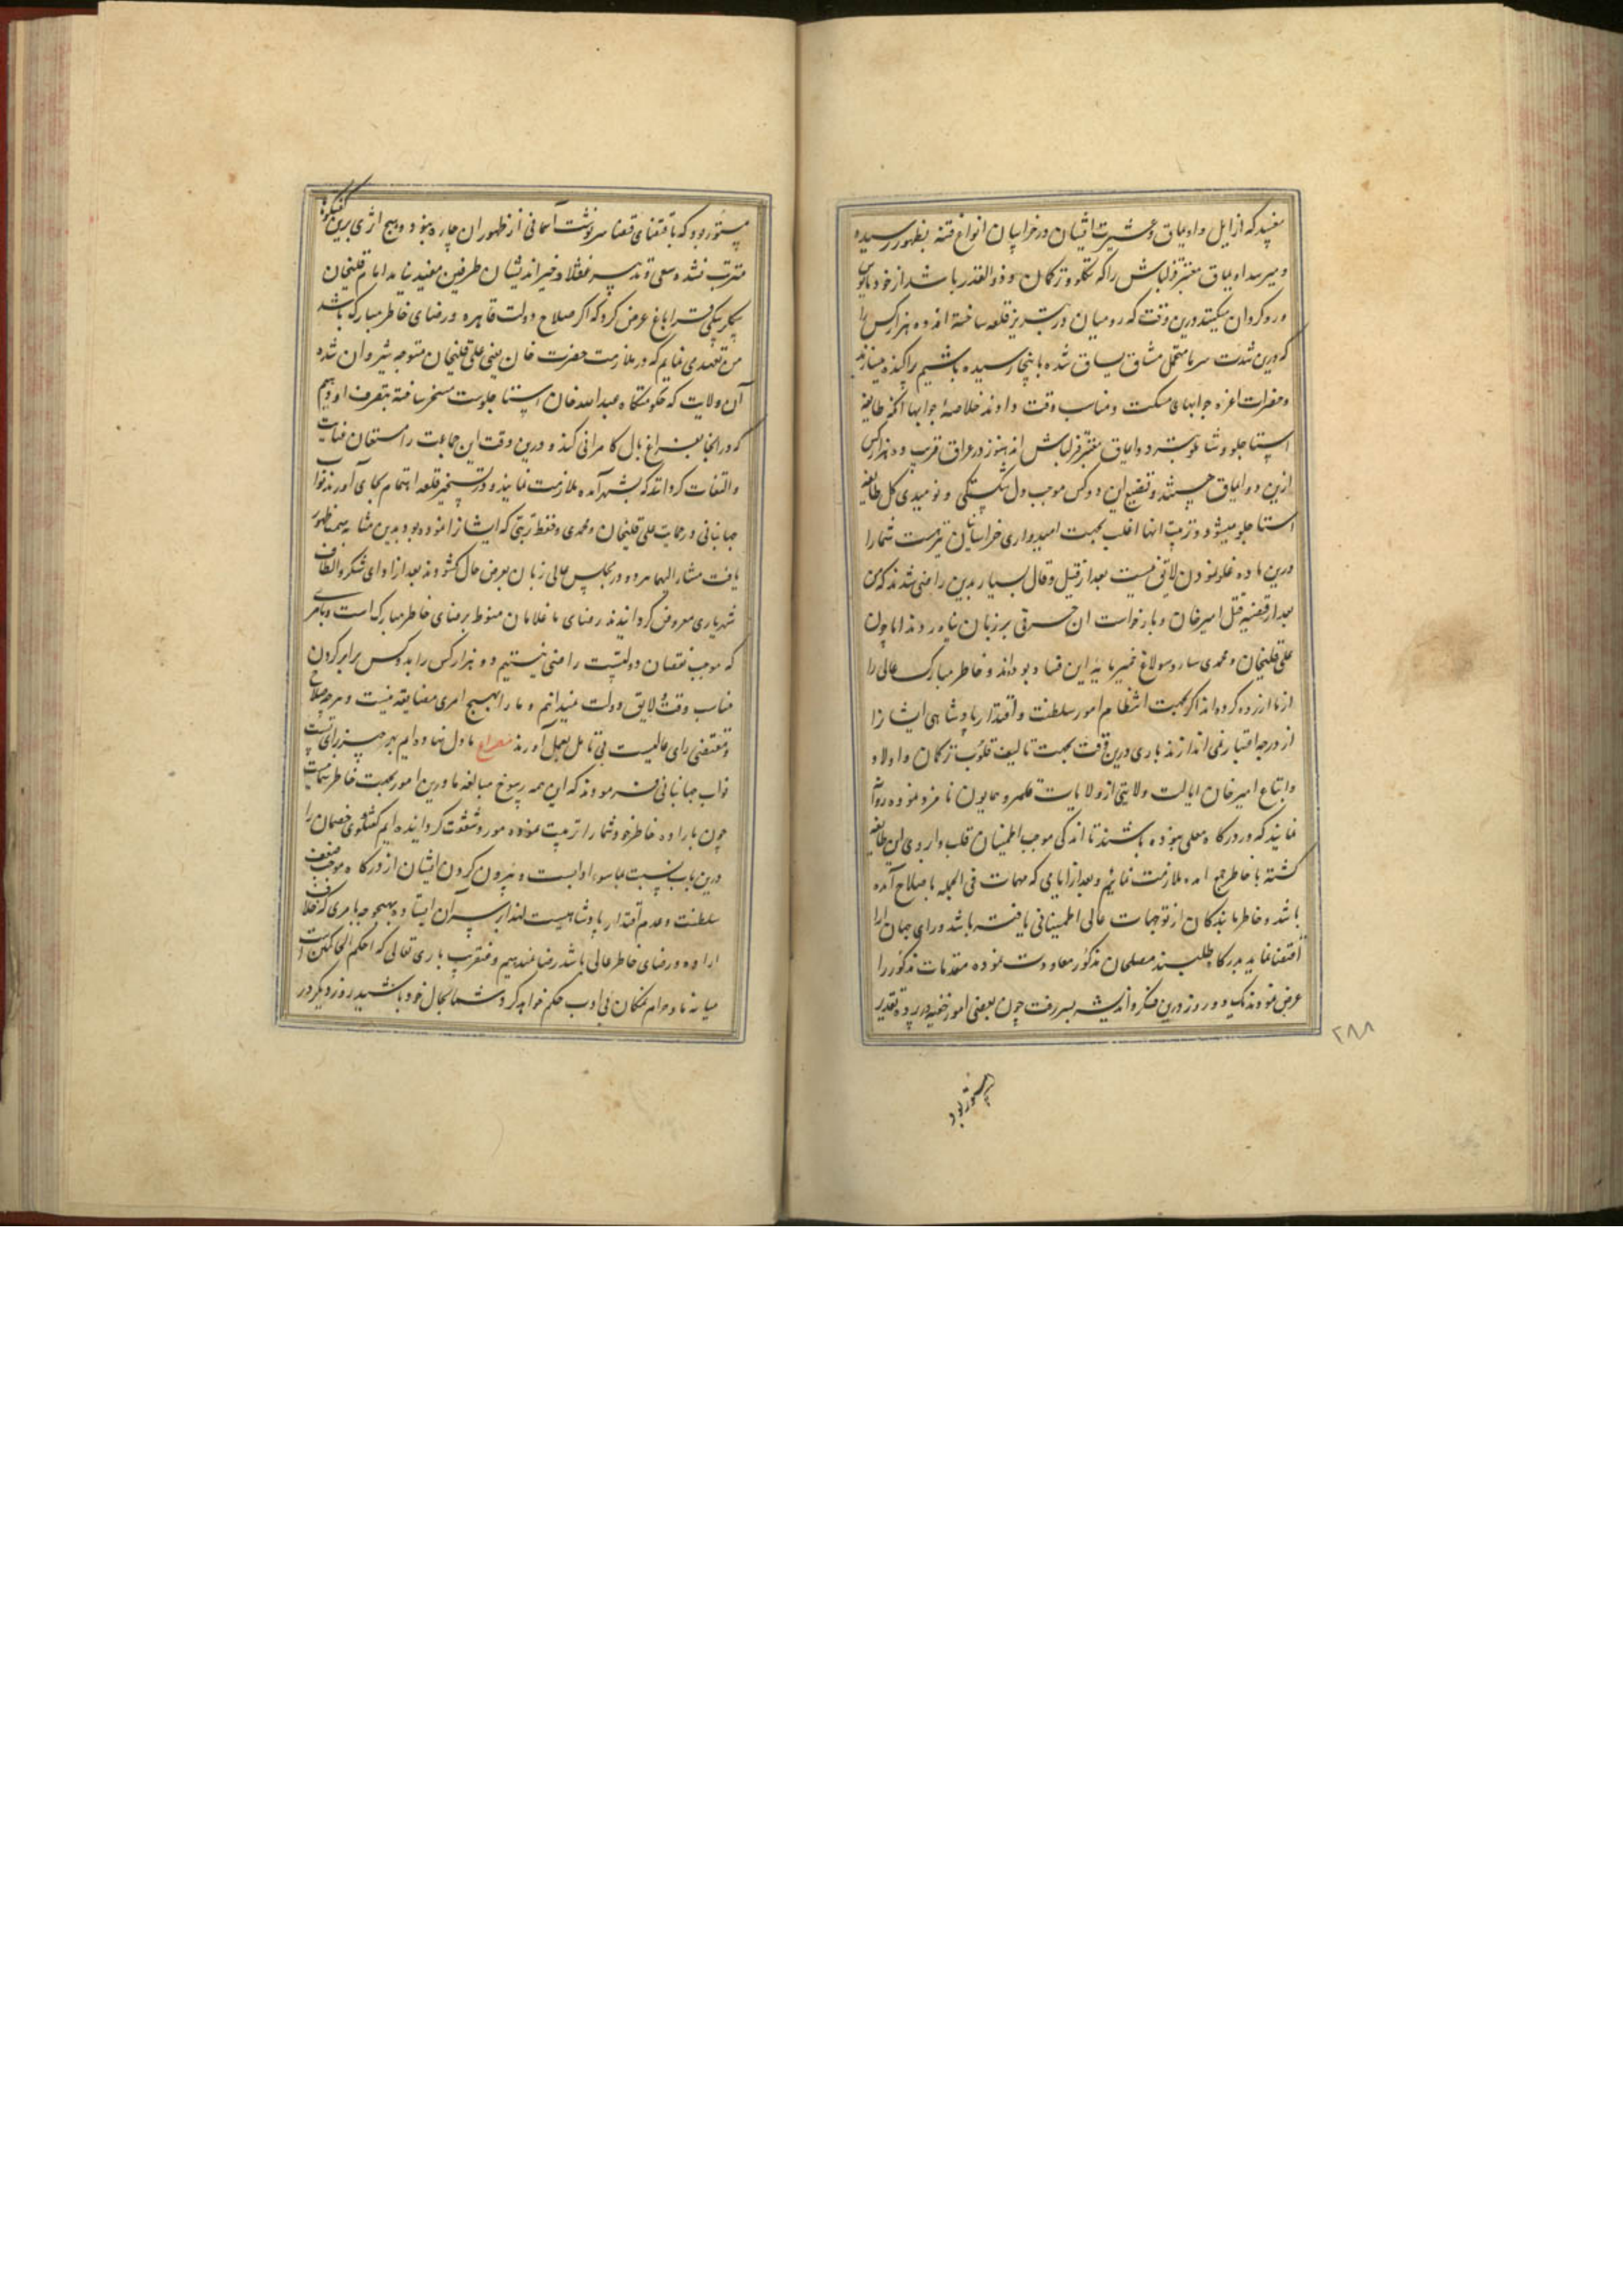 میفهمید که از ایل و اویماق و عشیرت ایشان در خراسان انواع فتنه بظهور رسیده
و میر سه اویماق معتبر قزلباش را که تکلو و ترکمان و ذوالقدر باشد از خود مایوس
و رو گردان میکنید درین وقت که رومیان در تبریز قلعه ساخته‌اند ده هزار کس را
که درین شدت سرما متحمل مشاق یساق شده باینجا رسیده باشیم پراکنده میسازند
و حضرات اعزه جوابهای مسکت و مناسب وقت دادند خلاصهٔ جوابها آنکه طایفه
استاجلو و شاملو سردو ایماق معتبر قزلباش‌اند هنوز در عراق قریب ده هزار کس
ازین دو ایماق هستند و تضییع این دو کس موجب دل شکستگی و نومیدی کل طایفه
استاجلو میشود و تربیت اینها اغلب بجهت امیدواری خراسانیان نیز هست شما را
درین ماده غلو نمودن لایق نیست بعد از قیل و قال بسیار بدین راضی شدند که من
بعد از قضیه قتل امیر خان و بازخواست آن حرفی بر زبان نیاورند اما چون
علی قلیخان و محمدی ساروسولاغ خمیر مایهٔ این فساد بوده‌اند و خاطر مبارک عالی را
از ما آزرده کرده‌اند اگر بجهت انتظام امور سلطنت و اقتدار پادشاهی ایشان را
از درجه اعتبار نمی‌اندازند باری درین وقت بجهت تالیف قلوب ترکمان و اولاد
و اتباع امیر خان ایالت ولایتی از ولایات قلمرو همایون نامزد نموده روانه
نمایند که در درگاه معلی نبوده باشند تا اندکی موجب اطمینان قلب و اردوی این طایفه
گشته با خاطر جمع آمده ملازمت نمائیم و بعد از ایامی که مهمات فی الجمله باصلاح آمده
باشد و خاطر ما بندگان از توجهات عالی اطمینانی یافته باشد و رای جهان آرا
اقتضا نماید بدرگاه طلبند مصلحان مذکور معاودت نموده مقدمات مذکور را
عرض نمودند یک دو روز درین فکر و اندیشه بسر رفت چون بعضی امور خفیه در پرده تقدیر
۲۸۸
مستور بود
مستور بود که باقتضای قضا و سرنوشت آسمانی از ظهور آن چاره نبود و هیچ اثری برین گفتگوها
مترتب نشده سعی و تدبیر عقلا و خیراندیشان طرفین مفید نیامد امامقلیخان
بیگلربیگی قراباغ عرض کرد که اگر صلاح دولت قاهره و رضای خاطر مبارکه باشد
من تعهد می‌نمایم که در ملازمت حضرت خان یعنی علی قلیخان متوجه شیروان شده
آن ولایت که حکومتگاه عبدالله خان استاجلوست مسخر ساخته بتصرف او دهیم
که در آنجا بفراغ بال کامرانی کند و درین وقت این جماعت را مستمال عنایت
و التفات گردانند که بشهر آمده ملازمت نمایند و در تسخیر قلعه اهتمام بجای آورند نواب
جهانبانی در حمایت علی قلیخان و محمدی و حفظ تربیتی که ایشان را نموده بود بدین مشابه سمت ظهور
یافت مشار الیهما هر دو در مجلس عالی زبان بعرض حال گشودند بعد از ادای شکر و الطاف
شهریاری معروض گردانیدند رضای ما غلامان منوط برضای خاطر مبارک است و بامری
که موجب نقصان دولتست راضی نیستیم و ده هزار کس را بدو کس برابر کردن
مناسب وقت و لایق دولت نمیدانیم و ما را بهیچ امری مضایقه نیست و هر چه صلاح
و مقتضی رای عالیست بی تامل بعمل آورند مصراع ما دل نهاده‌ایم بهر چیز رای تست
نواب جهانبانی فرمودند که این همه رسوخ مبالغه ما درین امور بجهت خاطر شماست
چون باراده خاطر خود شما را تربیت نموده مورد شفقت گردانیده‌ایم گفتگوی خصمان را
درین باب نسبت بما سوء ادبست و بیرون کردن ایشان از درگاه موجب ضعف
سلطنت و عدم اقتدار پادشاهیست لهذا بر سر آن ایستاده بهیچوجه بامری که خلاف
اراده و رضای خاطر عالی باشد رضا نمیدهیم و عنقریب باری تعالی که احکم الحاکمین است
میانه ما و حرام نمکان بی ادب حکم خواهد کرد شما بحال خود باشید روز دیگر در